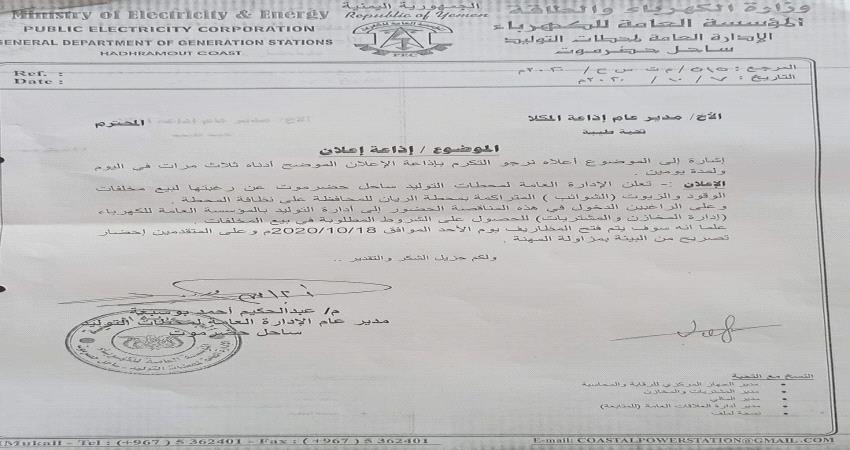 Ministry of Electricity & Energy
PUBLIC ELECTRICITY CORPORATION
GENERAL DEPARTMENT OF GENERATION STATIONS
HADHRAMOUT COAST
الجمهورية اليمنية
Republic of Yemen
PEC
وزارة الكهرباء والطاقة
المؤسسة العامة للكهرباء
الإدارة العامة لمحطات التوليد
ساحل حضرموت
Ref. :
Date :
المرجع :
التاريخ :
الأخ/ مدير عام إذاعة المكلا
المحترم
تحية طيبة
الموضوع / إذاعة إعلان
إشارة إلى الموضوع أعلاه نرجو التكرم بإذاعة الإعلان الموضح أدناه ثلاث مرات في اليوم
ولمدة يومين .
الإعلان :- تعلن الإدارة العامة لمحطات التوليد ساحل حضرموت عن رغبتها لبيع مخلفات
الوقود والزيوت (الشوائب ) المتراكمة بمحطة الريان للمحافظة على نظافة المحطة .
وعلى الراغبين الدخول في هذه المناقصة الحضور إلى إدارة التوليد بالمؤسسة العامة للكهرباء
(إدارة المخازن والمشتريات) للحصول على الشروط المطلوبة في بيع المخلفات
علما انه سوف يتم فتح المظاريف يوم الأحد الموافق 2020/10/18م وعلى المتقدمين إحضار
تصريح من البيئة بمزاولة المهنة .
ولكم جزيل الشكر والتقدير ..
م/ عبدالحكيم أحمد بوسبعة
مدير عام الإدارة العامة لمحطات التوليد
ساحل حضرموت
النسخ مع التحية
مدير الجهاز المركزي للرقابة والمحاسبة
مدير المشتريات والمخازن
مدير المالي
مدير إدارة العلاقات العامة (للمتابعة)
نسخة لملف
Mukall - Tel : (+967 ) 5 362401 - Fax : ( +967 ) 5 362401
E-mail: COASTALPOWERSTATION@GMAIL.COM